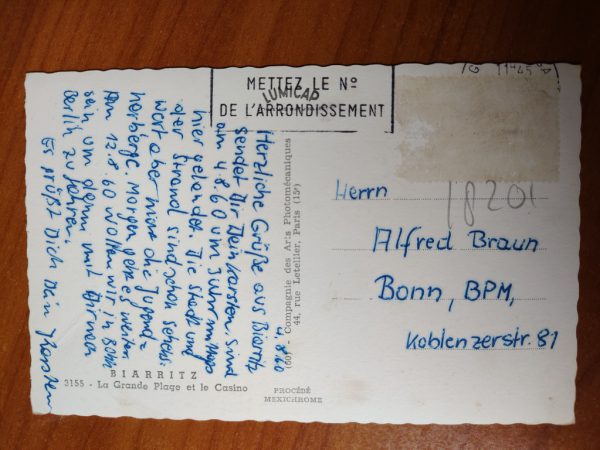 METTEZ LE Nº
DE L'ARRONDISSEMENT
LUMICAP
4.8.60
Herzliche Grüße aus Biarritz
sendet Dir Dein Karsten. Sind
am 4.8.60 um 3 Uhr mittags
hier gelandet. Die Stadt und
der Strand sind schon sehens-
wert aber nicht die Jugend-
herberge. Morgen geht es weiter.
Am 12.8.60 wollen wir in Bonn
sein um dann mit
Berlin zu fahren.
Es grüßt Dich Dein Karsten
BIARRITZ
3155 - La Grande Plage et le Casino
(60) - Compagnie des Arts Photomécaniques
44, rue Letellier, Paris (15e)
PROCÉDÉ
MEXICHROME
18201
Herrn
Alfred Braun
Bonn, BPM,
Koblenzerstr. 81